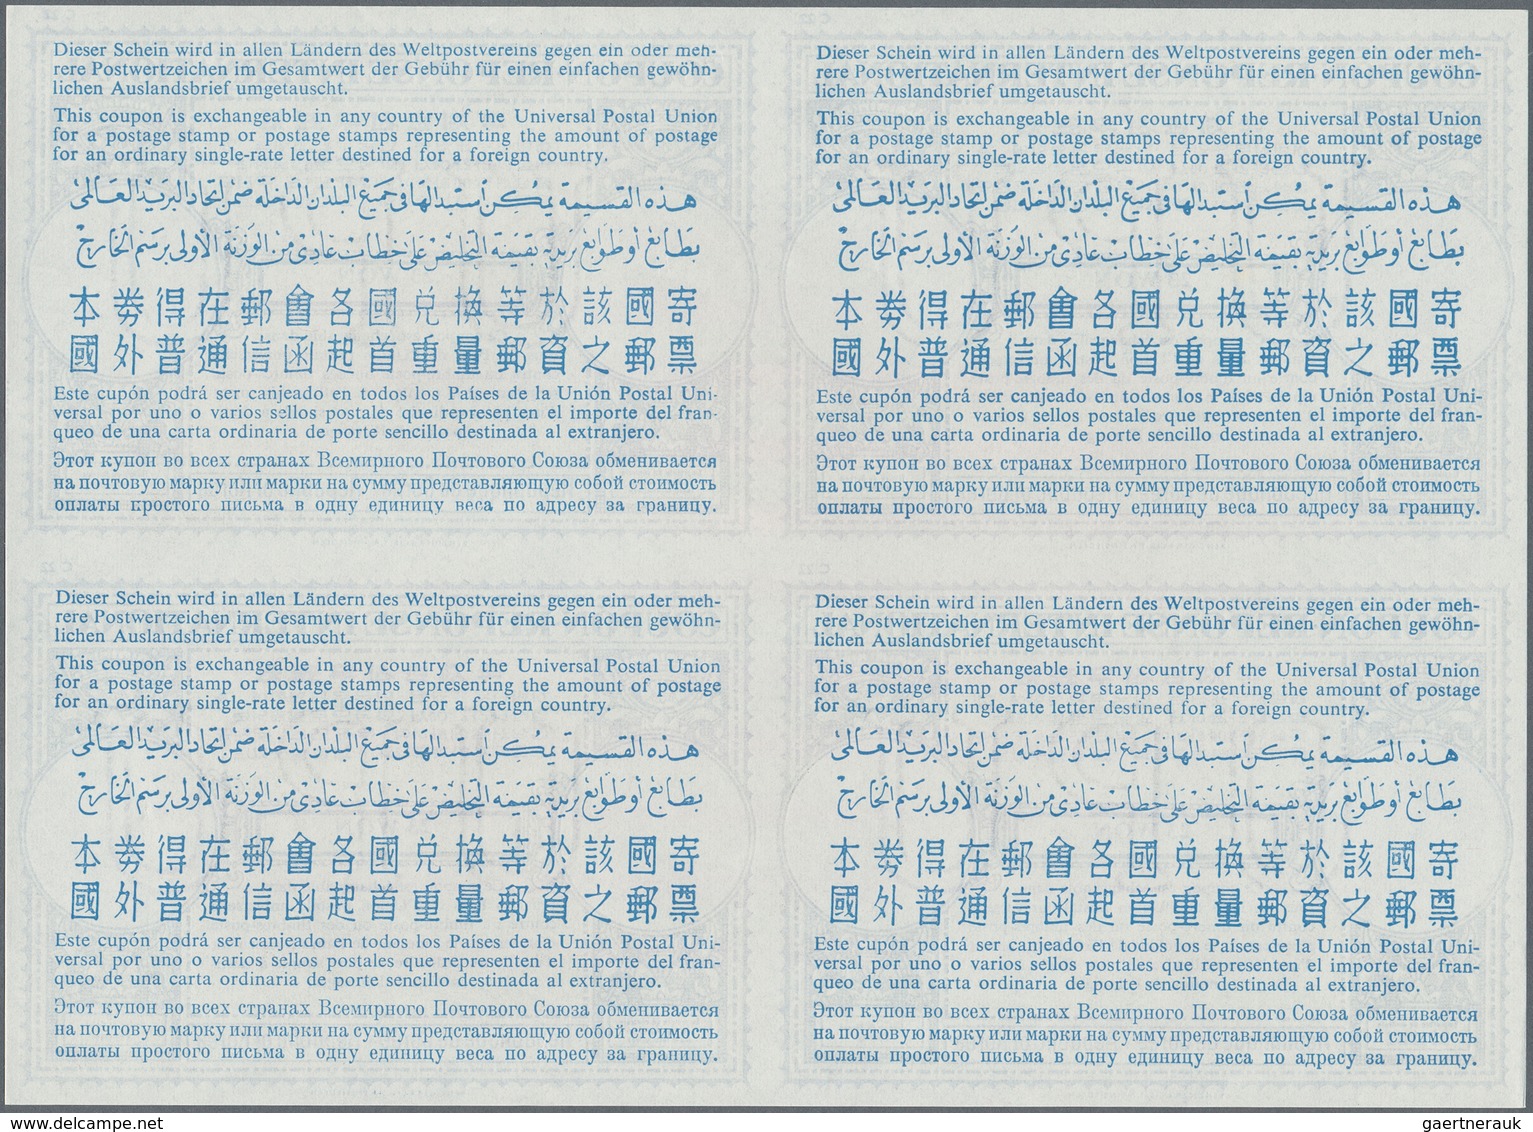 Dieser Schein wird in allen Ländern des Weltpostvereins gegen ein oder meh-
rere Postwertzeichen im Gesamtwert der Gebühr für einen einfachen gewöhn-
lichen Auslandsbrief umgetauscht.
This coupon is exchangeable in any country of the Universal Postal Union
for a postage stamp or postage stamps representing the amount of postage
for an ordinary single-rate letter destined for a foreign country.
هذه القسيمة يمكن استبدالها في جميع البلدان الداخلة ضمن اتحاد البريد العالمى
بطابع أو طوابع بريدية بقيمة التخليص على خطابات عادى من الوزنة الأولى برسم الخارج
本劵得在郵會各國兌換等於該國寄
國外普通信函起首重量郵資之郵票
Este cupón podrá ser canjeado en todos los Países de la Unión Postal Uni-
versal por uno o varios sellos postales que representen el importe del fran-
queo de una carta ordinaria de porte sencillo destinada al extranjero.
Этот купон во всех странах Всемирного Почтового Союза обменивается
на почтовую марку или марки на сумму представляющую собой стоимость
оплаты простого письма в одну единицу веса по адресу за границу.
Dieser Schein wird in allen Ländern des Weltpostvereins gegen ein oder meh-
rere Postwertzeichen im Gesamtwert der Gebühr für einen einfachen gewöhn-
lichen Auslandsbrief umgetauscht.
This coupon is exchangeable in any country of the Universal Postal Union
for a postage stamp or postage stamps representing the amount of postage
for an ordinary single-rate letter destined for a foreign country.
هذه القسيمة يمكن استبدالها في جميع البلدان الداخلة ضمن اتحاد البريد العالمى
بطابع أو طوابع بريدية بقيمة التخليص على خطابات عادى من الوزنة الأولى برسم الخارج
本劵得在郵會各國兌換等於該國寄
國外普通信函起首重量郵資之郵票
Este cupón podrá ser canjeado en todos los Países de la Unión Postal Uni-
versal por uno o varios sellos postales que representen el importe del fran-
queo de una carta ordinaria de porte sencillo destinada al extranjero.
Этот купон во всех странах Всемирного Почтового Союза обменивается
на почтовую марку или марки на сумму представляющую собой стоимость
оплаты простого письма в одну единицу веса по адресу за границу.
Dieser Schein wird in allen Ländern des Weltpostvereins gegen ein oder meh-
rere Postwertzeichen im Gesamtwert der Gebühr für einen einfachen gewöhn-
lichen Auslandsbrief umgetauscht.
This coupon is exchangeable in any country of the Universal Postal Union
for a postage stamp or postage stamps representing the amount of postage
for an ordinary single-rate letter destined for a foreign country.
هذه القسيمة يمكن استبدالها في جميع البلدان الداخلة ضمن اتحاد البريد العالمى
بطابع أو طوابع بريدية بقيمة التخليص على خطابات عادى من الوزنة الأولى برسم الخارج
本劵得在郵會各國兌換等於該國寄
國外普通信函起首重量郵資之郵票
Este cupón podrá ser canjeado en todos los Países de la Unión Postal Uni-
versal por uno o varios sellos postales que representen el importe del fran-
queo de una carta ordinaria de porte sencillo destinada al extranjero.
Этот купон во всех странах Всемирного Почтового Союза обменивается
на почтовую марку или марки на сумму представляющую собой стоимость
оплаты простого письма в одну единицу веса по адресу за границу.
Dieser Schein wird in allen Ländern des Weltpostvereins gegen ein oder meh-
rere Postwertzeichen im Gesamtwert der Gebühr für einen einfachen gewöhn-
lichen Auslandsbrief umgetauscht.
This coupon is exchangeable in any country of the Universal Postal Union
for a postage stamp or postage stamps representing the amount of postage
for an ordinary single-rate letter destined for a foreign country.
هذه القسيمة يمكن استبدالها في جميع البلدان الداخلة ضمن اتحاد البريد العالمى
بطابع أو طوابع بريدية بقيمة التخليص على خطابات عادى من الوزنة الأولى برسم الخارج
本劵得在郵會各國兌換等於該國寄
國外普通信函起首重量郵資之郵票
Este cupón podrá ser canjeado en todos los Países de la Unión Postal Uni-
versal por uno o varios sellos postales que representen el importe del fran-
queo de una carta ordinaria de porte sencillo destinada al extranjero.
Этот купон во всех странах Всемирного Почтового Союза обменивается
на почтовую марку или марки на сумму представляющую собой стоимость
оплаты простого письма в одну единицу веса по адресу за границу.
delcampe.net
gaertnerauk